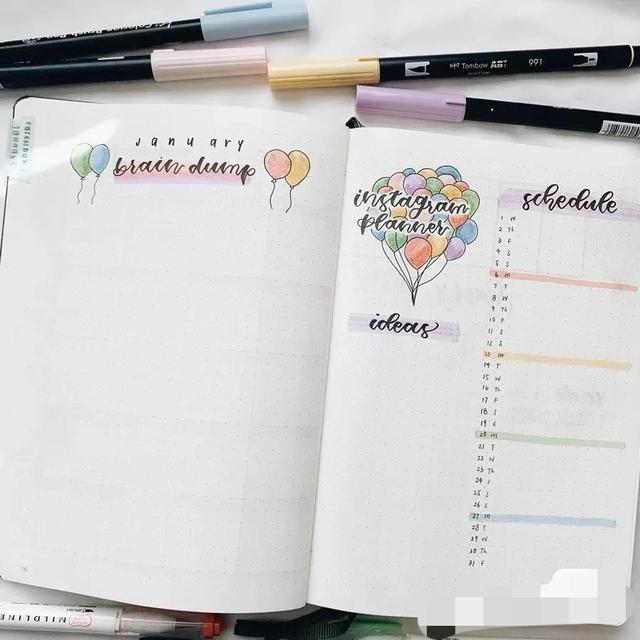 Tombow ABT 991
january
brain dump
instagram
planner
ideas
schedule
1 W
2 Th
3 F
4 S
5 S
6 M
7 T
8 W
9 Th
10 F
11 S
12 S
13 M
14 T
15 W
16 Th
17 F
18 S
19 S
20 M
21 T
22 W
23 Th
24 F
25 S
26 S
27 M
28 T
29 W
30 Th
31 F
MILDLINE